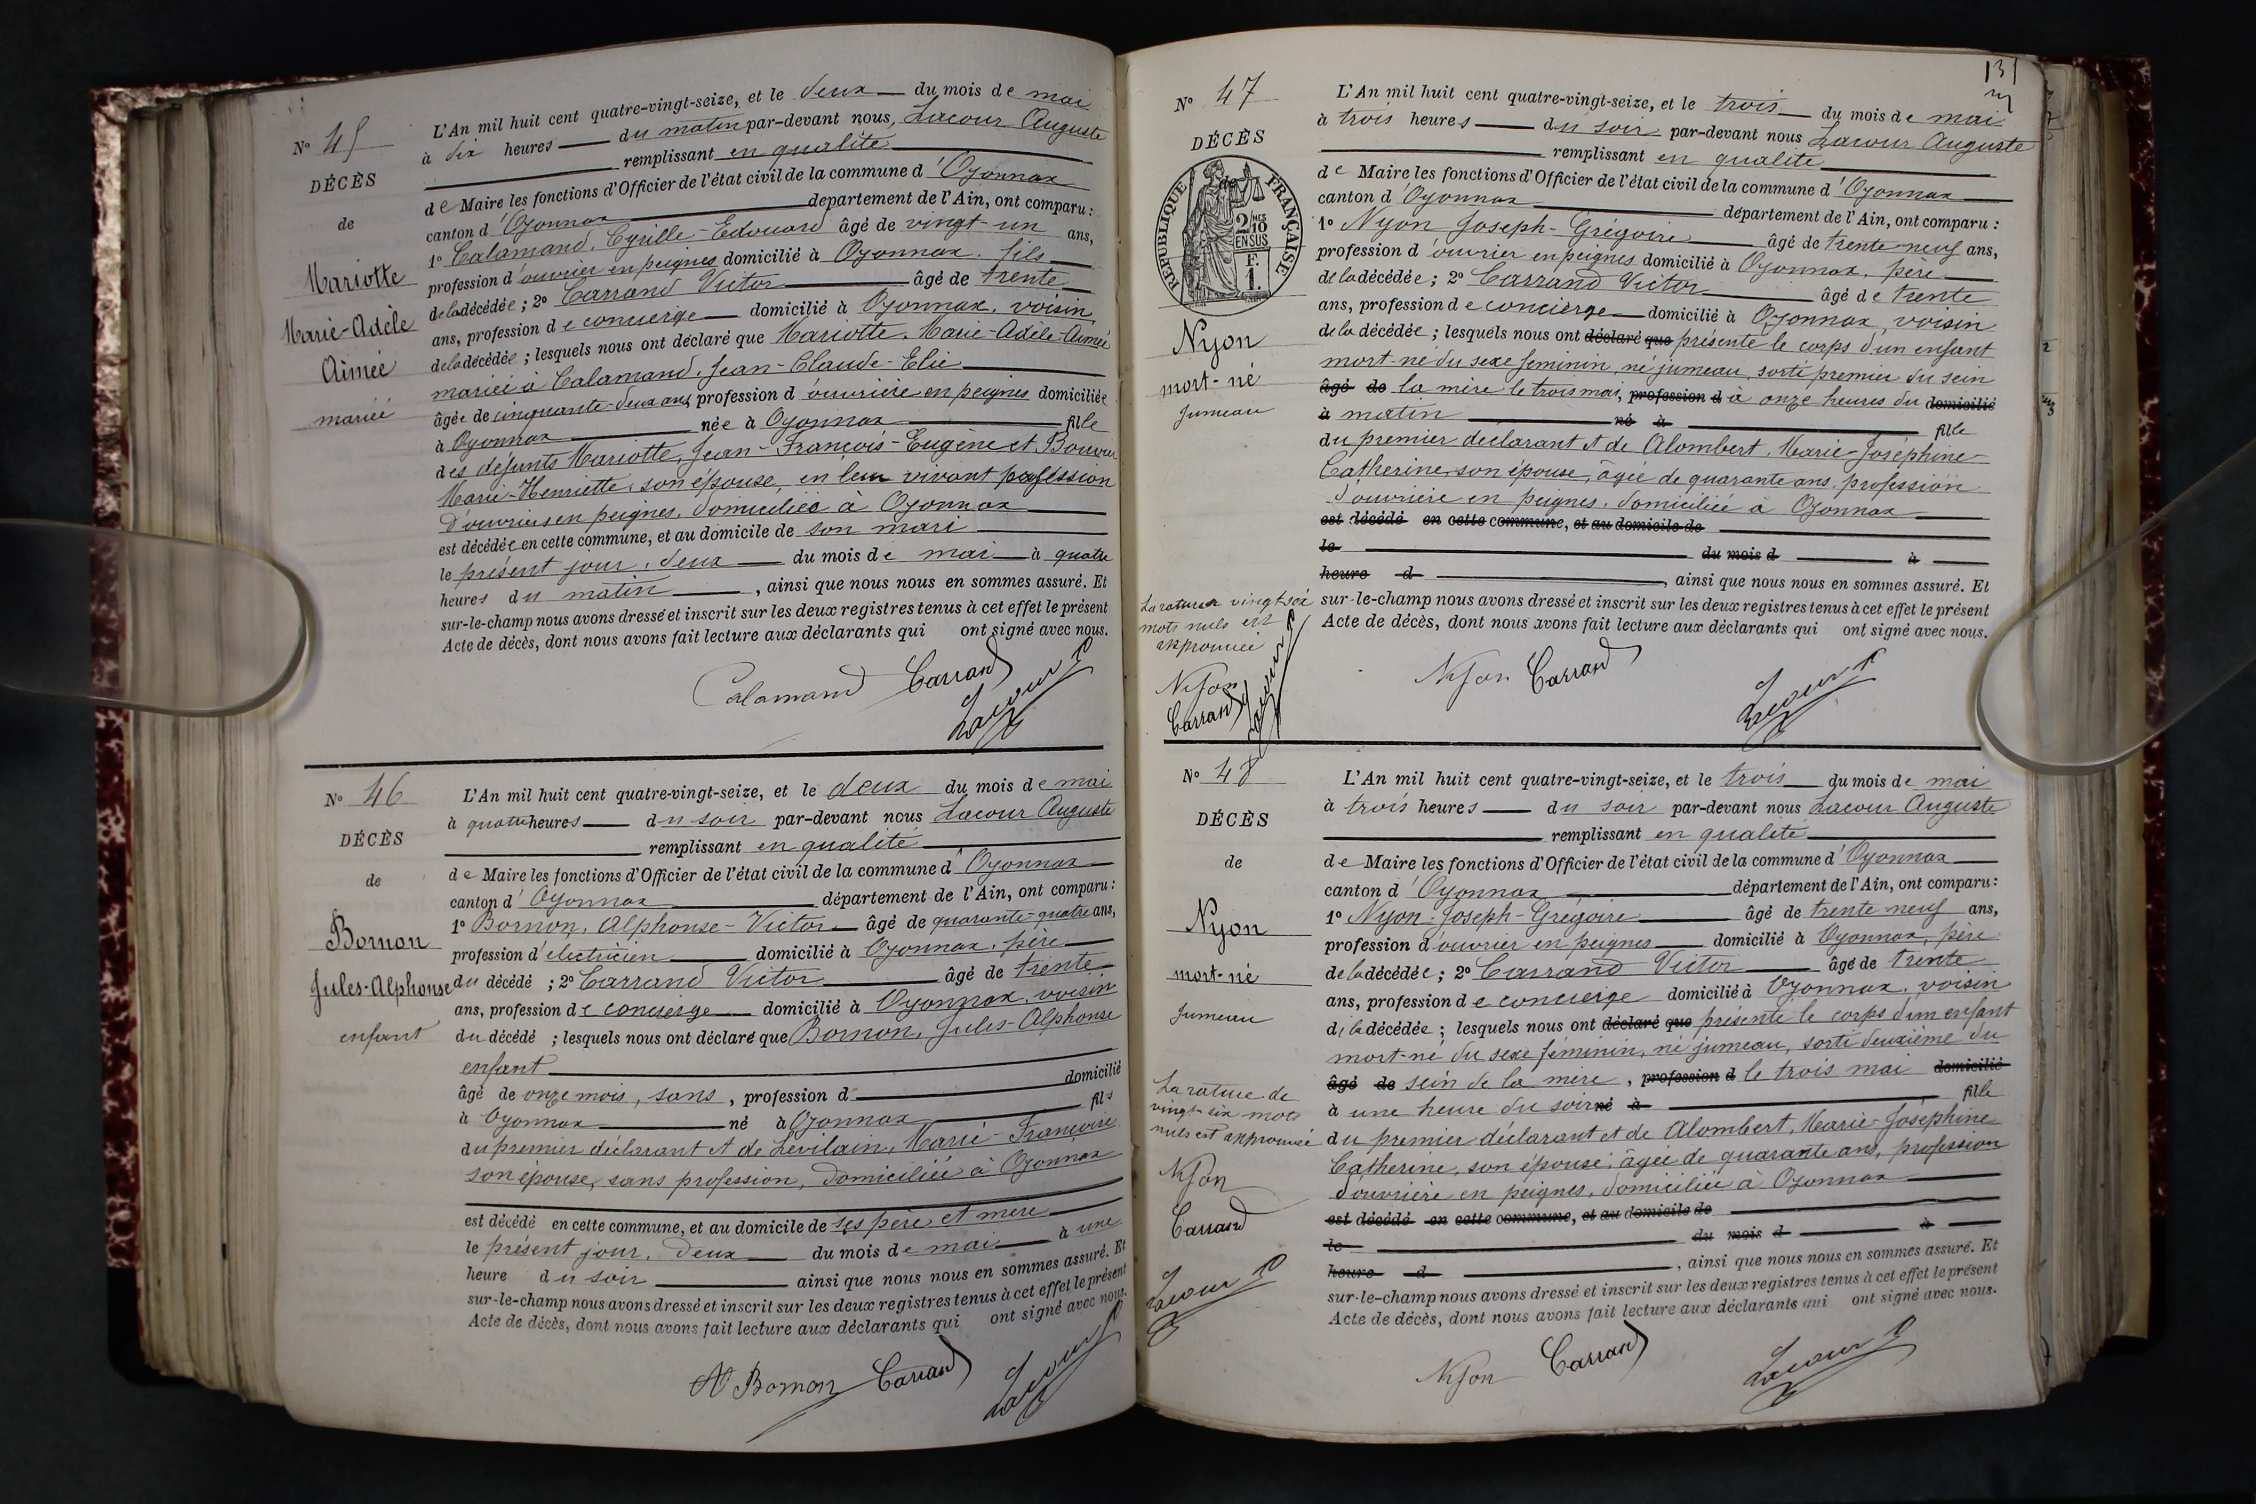 N° 45
DÉCÈS
de
Mariotte
Marie-Adèle
Aimée
mariée
L'An mil huit cent quatre-vingt-seize, et le deux du mois de mai
à dix heures du matin par-devant nous, Lacour Auguste
remplissant en qualité
de Maire les fonctions d'Officier de l'état civil de la commune d'Oyonnax
canton d'Oyonnax département de l'Ain, ont comparu :
1° Calamand, Cyrille-Edouard âgé de vingt-un ans,
profession d'ouvrier en peignes domicilié à Oyonnax, fils
de la décédée ; 2° Carrand Victor âgé de trente
ans, profession de concierge domicilié à Oyonnax, voisin
de la décédée ; lesquels nous ont déclaré que Mariotte, Marie-Adèle-Aimée
mariée à Calamand, Jean-Claude-Elie
âgée de cinquante-deux ans, profession d'ouvrière en peignes domiciliée
à Oyonnax née à Oyonnax fille
des défunts Mariotte, Jean-François-Eugène et Bouvier
Marie-Henriette, son épouse, en leur vivant profession
d'ouvriers en peignes, domiciliés à Oyonnax
est décédée en cette commune, et au domicile de son mari
le présent jour, deux du mois de mai à quatre
heures du matin, ainsi que nous nous en sommes assuré. Et
sur-le-champ nous avons dressé et inscrit sur les deux registres tenus à cet effet le présent
Acte de décès, dont nous avons fait lecture aux déclarants qui ont signé avec nous.
Calamand Carrand Lacour
N° 46
DÉCÈS
de
Bornon
Jules-Alphonse
enfant
L'An mil huit cent quatre-vingt-seize, et le deux du mois de mai
à quatre heures du soir par-devant nous Lacour Auguste
remplissant en qualité
de Maire les fonctions d'Officier de l'état civil de la commune d'Oyonnax
canton d'Oyonnax département de l'Ain, ont comparu :
1° Bornon, Alphonse-Victor âgé de quarante-quatre ans,
profession d'électricien domicilié à Oyonnax, père
du décédé ; 2° Carrand Victor âgé de trente
ans, profession de concierge domicilié à Oyonnax, voisin
du décédé ; lesquels nous ont déclaré que Bornon, Jules-Alphonse
enfant
âgé de onze mois, sans, profession d domicilié
à Oyonnax né à Oyonnax fils
du premier déclarant et de Levilain, Marie-Françoise
son épouse, sans profession, domiciliée à Oyonnax
est décédé en cette commune, et au domicile de ses père et mère
le présent jour, deux du mois de mai à une
heure du soir ainsi que nous nous en sommes assuré. Et
sur-le-champ nous avons dressé et inscrit sur les deux registres tenus à cet effet le présent
Acte de décès, dont nous avons fait lecture aux déclarants qui ont signé avec nous.
A Bornon Carrand Lacour
131
N° 47
DÉCÈS
de
RÉPUBLIQUE FRANÇAISE
2/10 EN SUS
F. 1.
Nyon
mort-né
jumeau
L'An mil huit cent quatre-vingt-seize, et le trois du mois de mai
à trois heures du soir par-devant nous Lacour Auguste
remplissant en qualité
de Maire les fonctions d'Officier de l'état civil de la commune d'Oyonnax
canton d'Oyonnax département de l'Ain, ont comparu :
1° Nyon Joseph-Grégoire âgé de trente-neuf ans,
profession d'ouvrier en peignes domicilié à Oyonnax, père
de la décédée ; 2° Carrand Victor âgé de trente
ans, profession de concierge domicilié à Oyonnax, voisin
de la décédée ; lesquels nous ont déclaré que présenté le corps d'un enfant
mort-né du sexe féminin, né jumeau, sorti premier du sein
âgé de la mère le trois mai, profession d à onze heures du domicilié
à matin né à fille
du premier déclarant et de Alombert, Marie-Joséphine-
Catherine, son épouse, âgée de quarante ans, profession
d'ouvrière en peignes, domiciliée à Oyonnax
est décédé en cette commune, et au domicile de
le du mois d à
heure d, ainsi que nous nous en sommes assuré. Et
sur-le-champ nous avons dressé et inscrit sur les deux registres tenus à cet effet le présent
Acte de décès, dont nous avons fait lecture aux déclarants qui ont signé avec nous.
La rature vingt-six
mots nuls est
approuvée
Nyon
Carrand Lacour
Nyon Carrand Lacour
N° 48
DÉCÈS
de
Nyon
mort-né
jumeau
L'An mil huit cent quatre-vingt-seize, et le trois du mois de mai
à trois heures du soir par-devant nous Lacour Auguste
remplissant en qualité
de Maire les fonctions d'Officier de l'état civil de la commune d'Oyonnax
canton d'Oyonnax département de l'Ain, ont comparu :
1° Nyon Joseph-Grégoire âgé de trente-neuf ans,
profession d'ouvrier en peignes domicilié à Oyonnax, père
de la décédée ; 2° Carrand Victor âgé de trente
ans, profession de concierge domicilié à Oyonnax, voisin
de la décédée ; lesquels nous ont déclaré que présenté le corps d'un enfant
mort-né du sexe féminin, né jumeau, sorti deuxième du
âgé de sein de la mère, profession d le trois mai domicilié
à une heure du soir né à fille
du premier déclarant et de Alombert, Marie-Joséphine
Catherine, son épouse, âgée de quarante ans, profession
d'ouvrière en peignes, domiciliée à Oyonnax
est décédé en cette commune, et au domicile de
le du mois d à
heure d, ainsi que nous nous en sommes assuré. Et
sur-le-champ nous avons dressé et inscrit sur les deux registres tenus à cet effet le présent
Acte de décès, dont nous avons fait lecture aux déclarants qui ont signé avec nous.
La rature de
vingt-six mots
nuls est approuvée
Nyon
Carrand
Lacour
Nyon Carrand Lacour